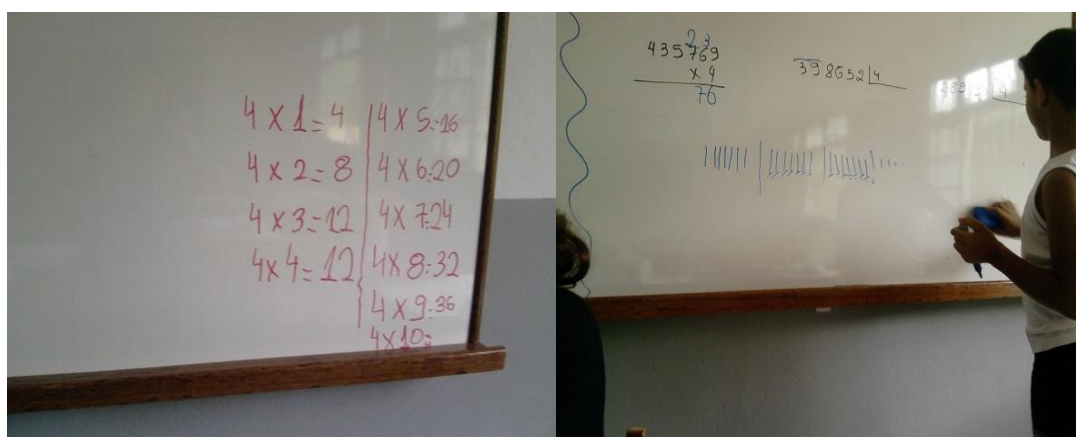 4 x 1 = 4
4 x 2 = 8
4 x 3 = 12
4 x 4 = 12
4 x 5 = 16
4 x 6 = 20
4 x 7 = 24
4 x 8 = 32
4 x 9 = 36
4 x 10 =
23
435769
x 4
76
398652 4